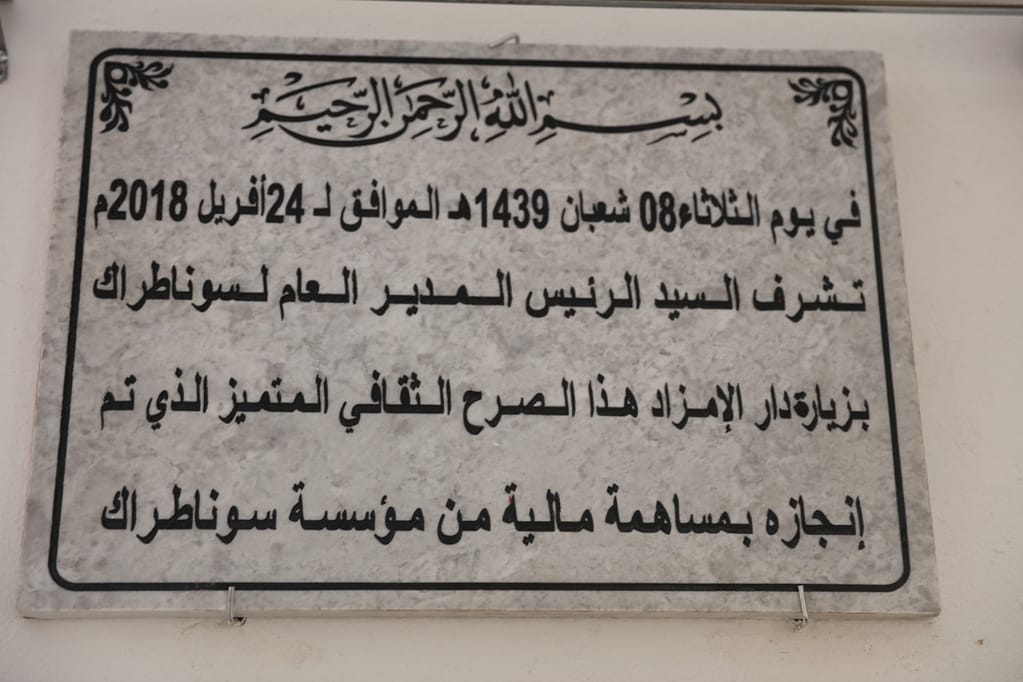 بسم الله الرحمن الرحيم
في يوم الثلاثاء08 شعبان 1439هـ الموافق لـ 24أفريل 2018م
تشرف السيد الرئيس المدير العام لسوناطراك
بزيارةدار الإمزاد هذا الصرح الثقافي المتميز الذي تم
إنجازه بمساهمة مالية من مؤسسة سوناطراك